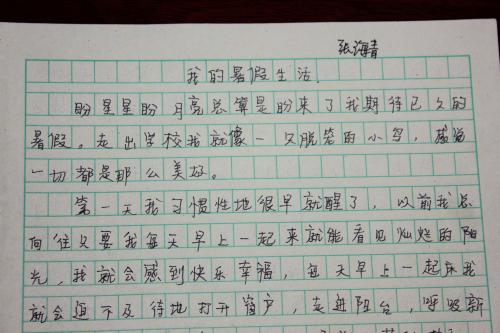 张海青
我的暑假生活.
盼星星盼月亮总算是盼来了我期待已久的
暑假。走出学校我就像一只脱笼的小鸟，感觉
一切都是那么美好。
第一天我习惯性地很早就醒了，以前我总
向往只要我每天早上一起来就能看见灿烂的阳
光，我就会感到快乐幸福，每天早上一起床我
就会迫不及待地打开窗户，走进阳台，呼吸新